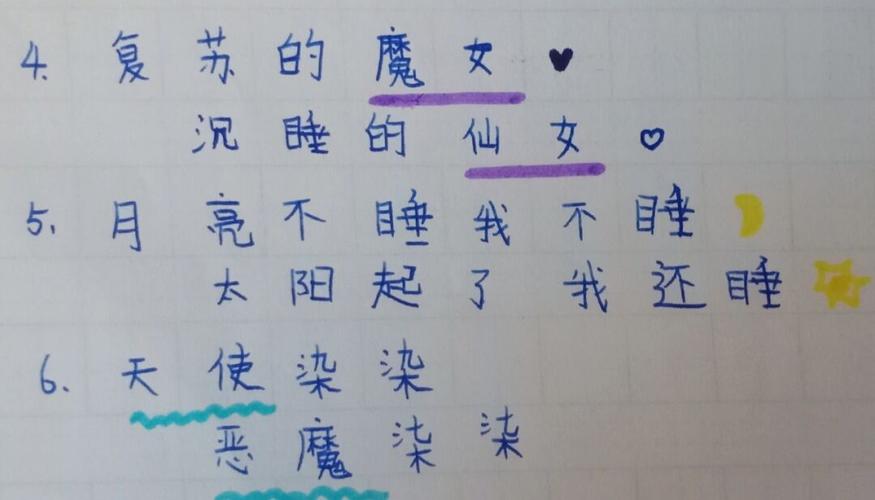 4. 复苏的魔女♥
沉睡的仙女♡
5. 月亮不睡我不睡
太阳起了我还睡
6. 天使染染
恶魔染染